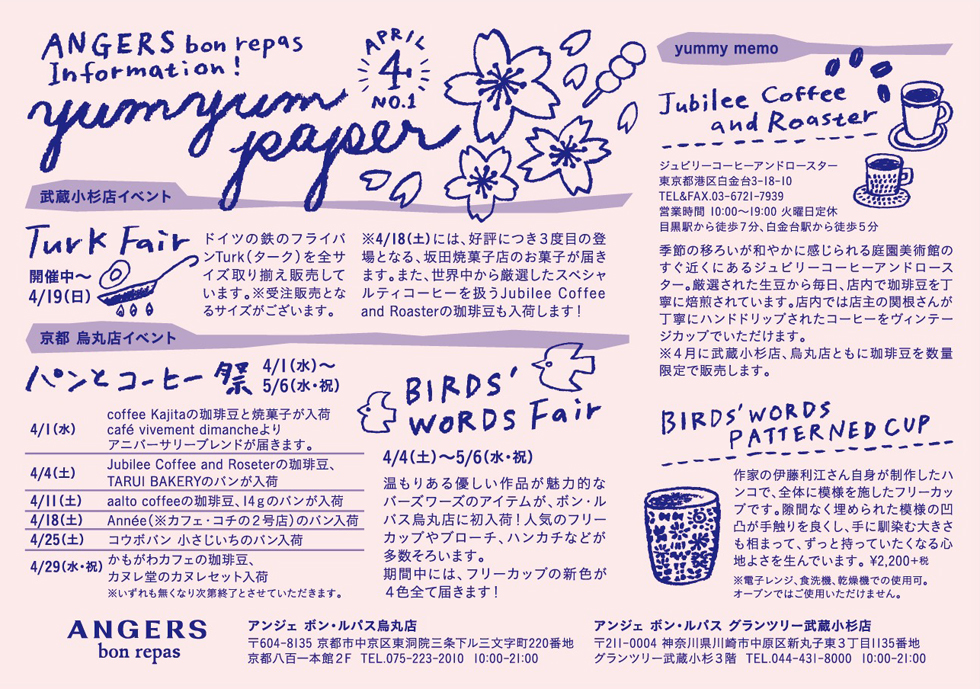 ANGERS bon repas
Information!
yumyum
paper
APRIL
4
NO.1
武蔵小杉店イベント
Turk Fair
開催中〜
4/19(日)
ドイツの鉄のフライパ
ンTurk(ターク)を全サ
イズ取り揃え販売して
います。※受注販売とな
るサイズがございます。
※4/18(土)には、好評につき3度目の登
場となる、坂田焼菓子店のお菓子が届き
ます。また、世界中から厳選したスペシャ
ルティコーヒーを扱うJubilee Coffee
and Roasterの珈琲豆も入荷します!
京都 烏丸店イベント
パンとコーヒー祭
4/1(水)〜
5/6(水・祝)
4/1(水)
coffee Kajitaの珈琲豆と焼菓子が入荷
café vivement dimancheより
アニバーサリーブレンドが届きます。
4/4(土)
Jubilee Coffee and Roseterの珈琲豆、
TARUI BAKERYのパンが入荷
4/11(土) aalto coffeeの珈琲豆、14gのパンが入荷
4/18(土) Année(※カフェ・コチの2号店)のパン入荷
4/25(土) コウボパン 小さじいちのパン入荷
4/29(水・祝)
かもがわカフェの珈琲豆、
カヌレ堂のカヌレセット入荷
※いずれも無くなり次第終了とさせていただきます。
BIRDS'
WORDS Fair
4/4(土)〜5/6(水・祝)
温もりある優しい作品が魅力的な
バーズワーズのアイテムが、ボン・ル
パス烏丸店に初入荷!人気のフリー
カップやブローチ、ハンカチなどが
多数そろいます。
期間中には、フリーカップの新色が
4色全て届きます!
yummy memo
Jubilee Coffee
and Roaster
ジュビリーコーヒーアンドロースター
東京都港区白金台3-18-10
TEL&FAX.03-6721-7939
営業時間 10:00〜19:00 火曜日定休
目黒駅から徒歩7分、白金台駅から徒歩5分
季節の移ろいが和やかに感じられる庭園美術館の
すぐ近くにあるジュビリーコーヒーアンドロース
ター。厳選された生豆から毎日、店内で珈琲豆を丁
寧に焙煎されています。店内では店主の関根さんが
丁寧にハンドドリップされたコーヒーをヴィンテー
ジカップでいただけます。
※4月に武蔵小杉店、烏丸店ともに珈琲豆を数量
限定で販売します。
BIRDS' WORDS
PATTERNED CUP
作家の伊藤利江さん自身が制作したハ
ンコで、全体に模様を施したフリーカッ
プです。隙間なく埋められた模様の凹
凸が手触りを良くし、手に馴染む大きさ
も相まって、ずっと持っていたくなる心
地よさを生んでいます。 ¥2,200+税
※電子レンジ、食洗機、乾燥機での使用可。
オーブンではご使用いただけません。
ANGERS
bon repas
アンジェ ボン・ルパス烏丸店
〒604-8135 京都市中京区東洞院三条下ル三文字町220番地
京都八百一本館2F TEL.075-223-2010 10:00-21:00
アンジェ ボン・ルパス グランツリー武蔵小杉店
〒211-0004 神奈川県川崎市中原区新丸子東3丁目1135番地
グランツリー武蔵小杉3階 TEL.044-431-8000 10:00-21:00